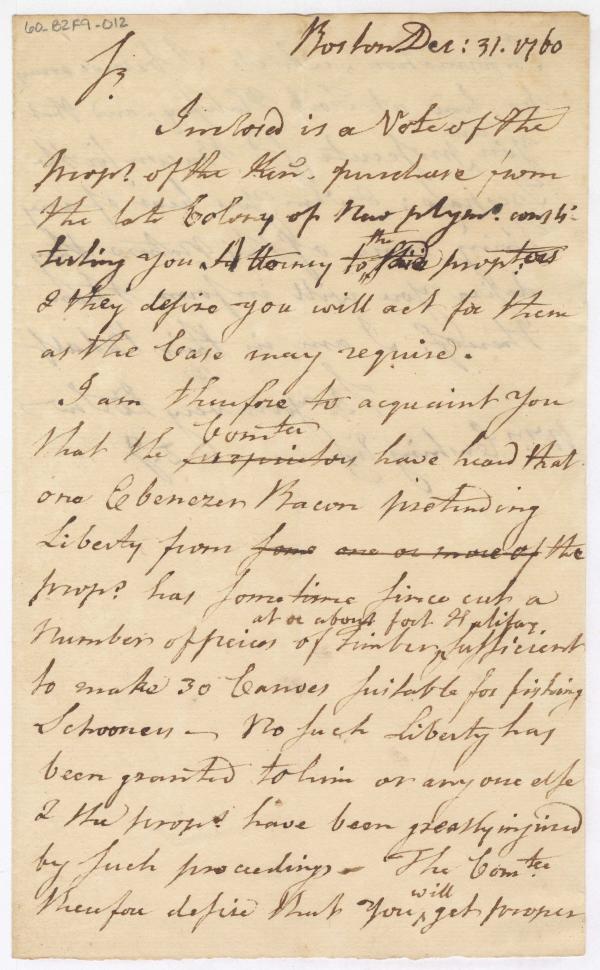 60-B2F9-012
Boston Dec: 31. 1760
Sr.
Inclosed is a Vote of the
Props. of the Ken. purchase from
the late Colony of New plymo. consti-
tuting you Attorney to the said propters
& they desire you will act for them
as the Case may require.
I am therefore to acquaint you
that the Comtee proprietors have heard that
one Ebenezer Bacon pretending
Liberty from some one or more of the
props. has sometime since cut a
Number of peices of Timber at or about fort Halifax, sufficient
to make 30 Canoes suitable for fishing
Schooners — No such Liberty has
been granted to him or any one else
& the props. have been greatly injured
by such proceedings — The Comtee
therefore desire that you will get proper